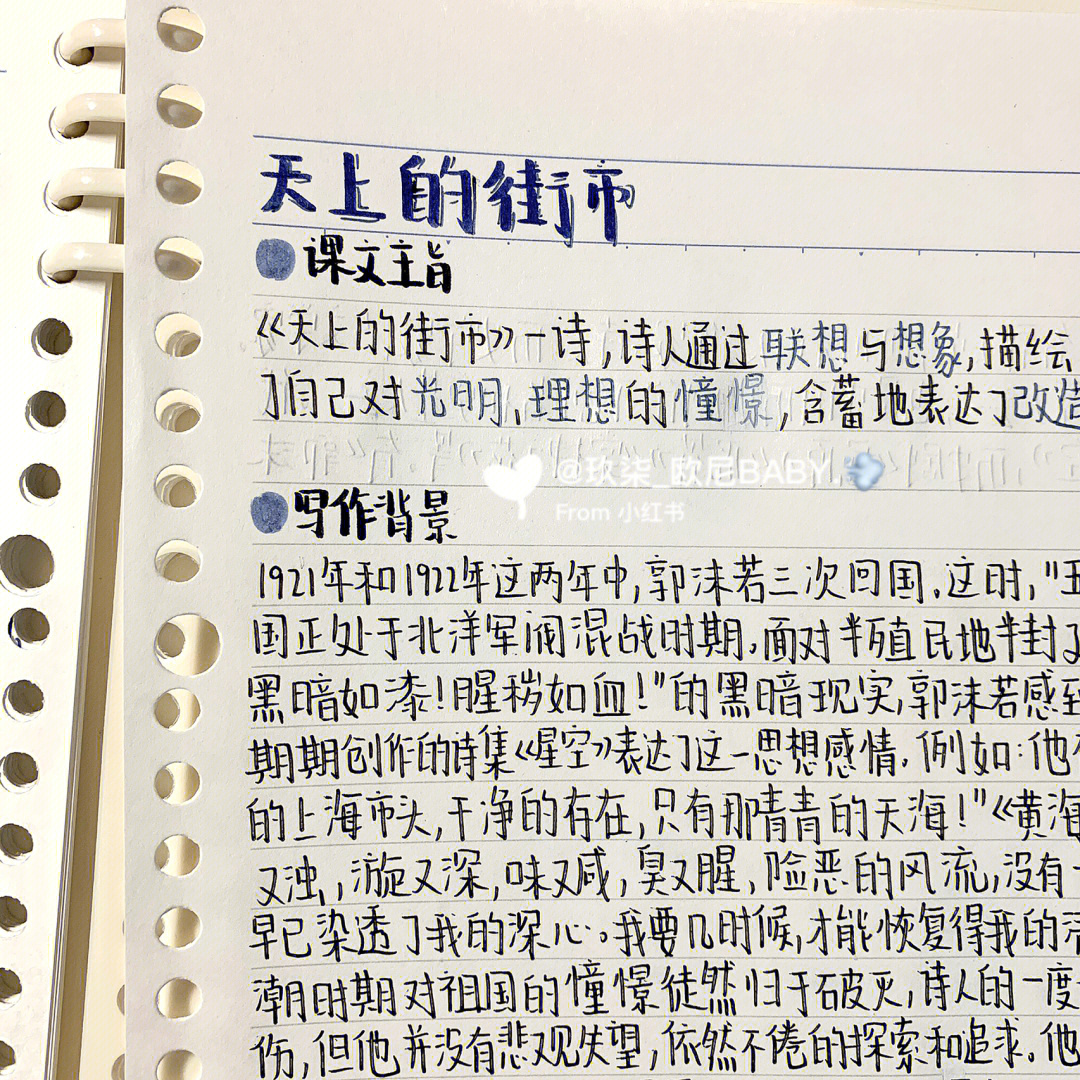 天上的街市
课文主旨
《天上的街市》一诗,诗人通过联想与想象,描绘
了自己对光明、理想的憧憬,含蓄地表达了改造
@玖柒_欧尼BABY.
From 小红书
写作背景
1921年和1922年这两年中,郭沫若三次回国.这时,"五
国正处于北洋军阀混战时期,面对半殖民地半封
黑暗如漆!腥秽如血!"的黑暗现实,郭沫若感到
期期创作的诗集《星空》表达了这一思想感情.例如:他
的上海市头,干净的存在,只有那青青的天海!"《黄海
又浊,漩又深,味又咸,臭又腥,险恶的风流,没有一
早已染透了我的深心。我要几时候,才能恢复得我的
潮时期对祖国的憧憬徒然归于破灭,诗人的一度
伤,但他并没有悲观失望,依然不倦的探索和追求.他